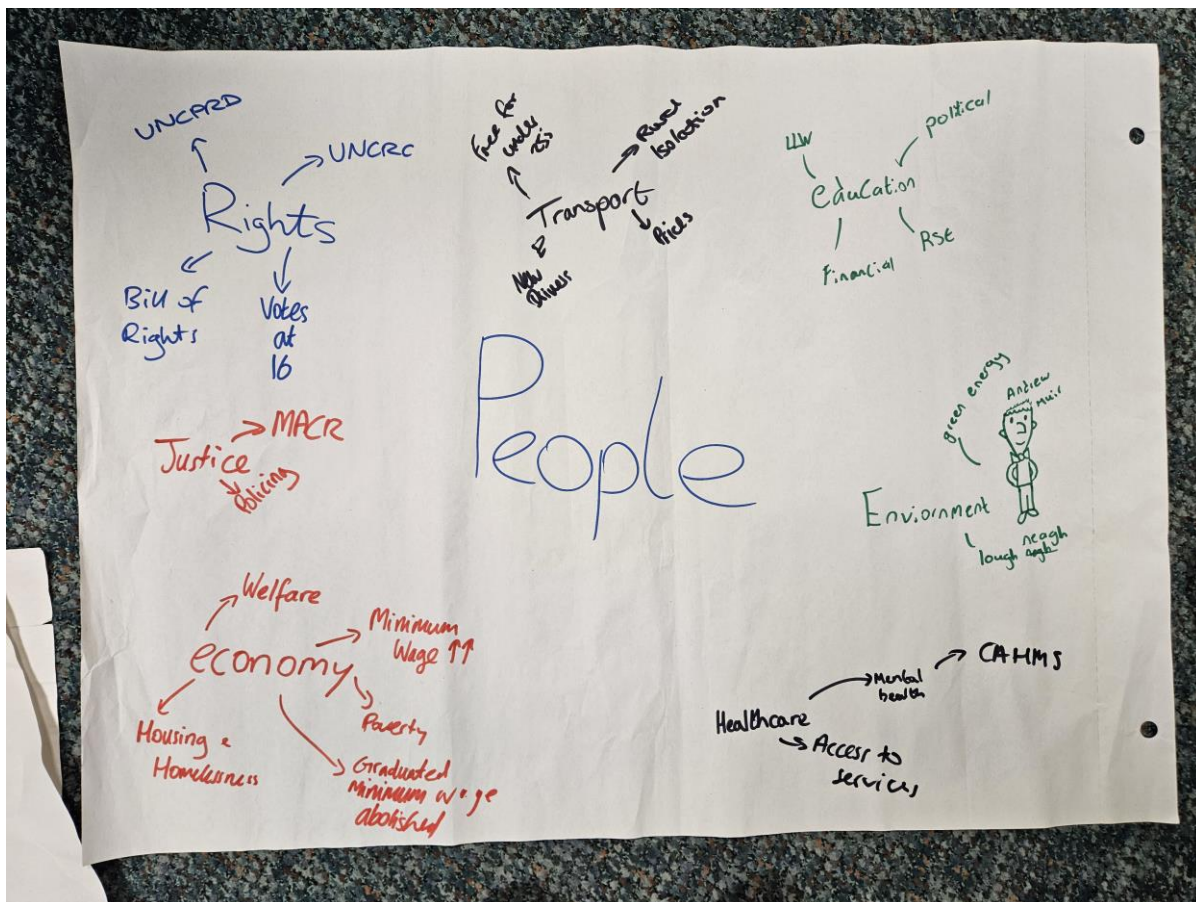 UNCPRD
UNCRC
Rights
Bill of
Rights
Votes
at
16
Free for
under
25s
Rural
Isolation
Transport
Prices
New
Drivers
political
LLW
education
RSE
Financial
People
MACR
Justice
Policing
green energy
Andrew
Muir
Enviornment
lough neagh
Welfare
Minimum
Wage ↑↑
economy
Poverty
Housing &
Homelessness
Graduated
Minimum Wage
abolished
CAHMS
Mental
health
Healthcare
Access to
services